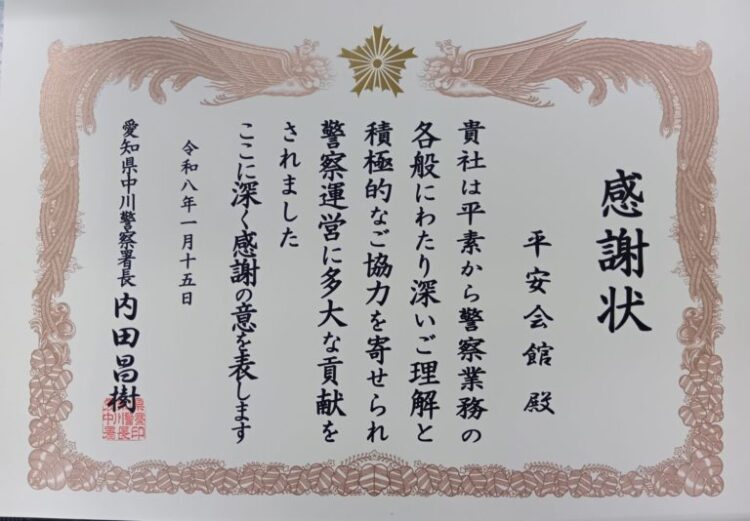 感謝状
平安会館 殿
貴社は平素から警察業務の
各般にわたり深いご理解と
積極的なご協力を寄せられ
警察運営に多大な貢献を
されました
ここに深く感謝の意を表します
令和八年一月十五日
愛知県中川警察署長 内田昌樹